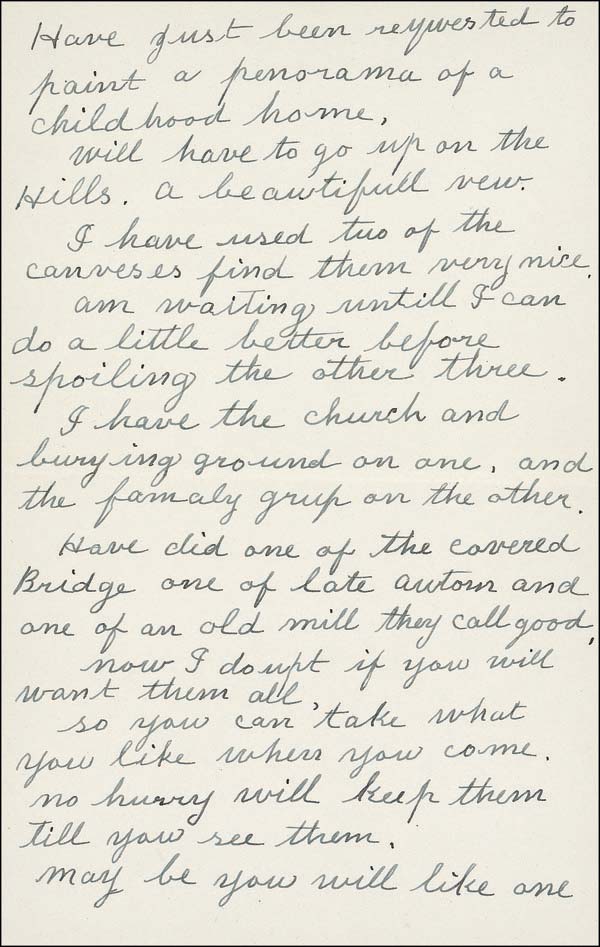 Have just been reqwested to
paint a penorama of a
childhood home,
will have to go up on the
Hills. a beawtifull vew.
I have used two of the
canveses find them very nice.
am waiting untill I can
do a little better before
spoiling the other three.
I have the church and
burying ground on one, and
the famaly grup on the other.
Have did one of the covered
Bridge one of late autom and
one of an old mill they call good,
now I doupt if you will
want them all,
so you can take what
you like when you come.
no hurry will keep them
till you see them,
may be you will like one